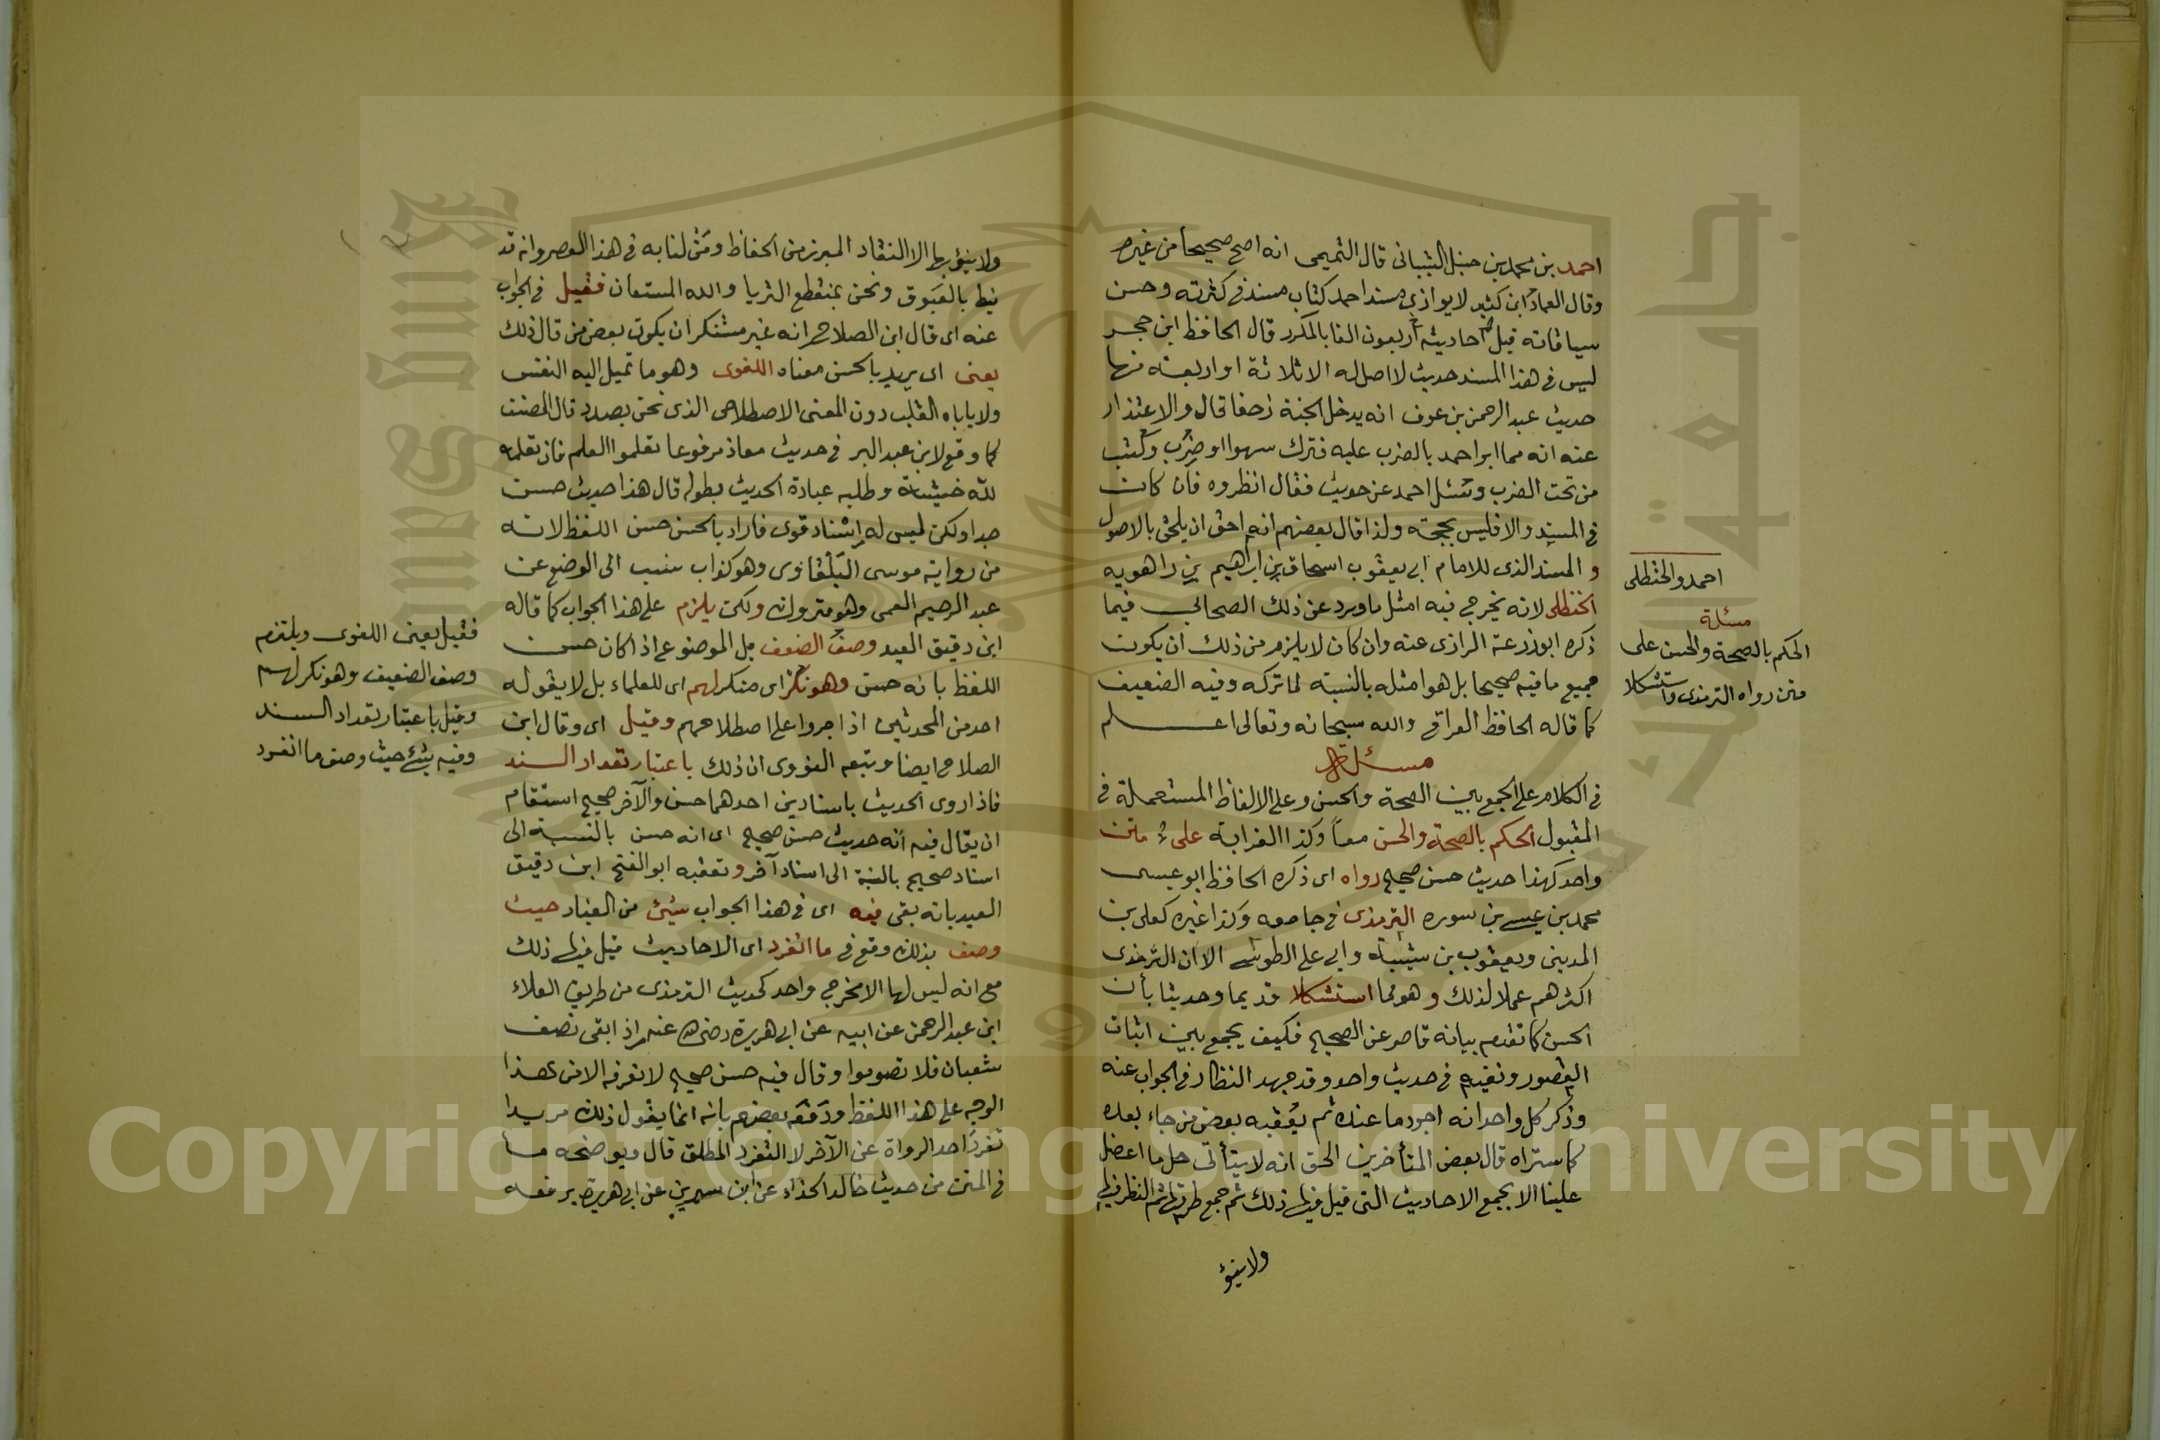 احمد بن محمد بن حنبل الشيبانى قال التميمى انه اصح صحيحا من غيره
وقال العماد ابن كثير لا يوازى مسند احمد كتاب مسند فى كثرته وحسن
سياقاته قيل احاديثه اربعون الفا بالمكرر قال الحافظ ابن حجر
ليس فى هذا المسند حديث لا اصل له الا ثلاثة او اربعة منها
حديث عبد الرحمن بن عوف انه يدخل الجنة زحفا قال والاعتذار
عنه انه مما امر احمد بالضرب عليه فترك سهوا او ضرب وكتب
من تحت الضرب وسئل احمد عن حديث فقال انظروه فان كان
فى المسند والا فليس بحجة ولذا قال بعضهم انه احق ان يلحق بالاصول
و المسند الذى للامام ابى يعقوب اسحاق بن ابراهيم بن راهويه
الحنظلى لانه يخرج فيه امثل ما ورد عن ذلك الصحابى فيما
ذكره ابو زرعة الرازى عنه وان كان لا يلزم من ذلك ان يكون
جميع ما فيه صحيحا بل هو امثله بالنسبة لما تركه وفيه الضعيف
كما قاله الحافظ العراقى والله سبحانه وتعالى اعلم
مسئلة
فى الكلام على الجمع بين الصحة والحسن وعلى الالفاظ المستعملة فى
المقبول الحكم بالصحة والحسن معا وكذا الغرابة على متن
واحد كهذا حديث حسن صحيح رواه اى ذكره الحافظ ابو عيسى
محمد بن عيسى بن سوره الترمذى فى جامعه وكذا غيره كعلى بن
المدينى ويعقوب بن شيبة وابى على الطوسى الا ان الترمذى
اكثرهم عملا لذلك و هو مما استشكلا قديما وحديثا بأن
الحسن كما تقدم بيانه قاصر عن الصحيح فكيف يجمع بين اثبات
القصور ونفيه فى حديث واحد وقد جهد النظار فى الجواب عنه
وذكر كل واحد انه اجود ما عنده ثم يعقبه بعض من جاء بعده
كما ستراه قال بعض المتأخرين الحق انه لا يتأتى حل ما اعضل
علينا الا بجمع الاحاديث التى قيل فيها ذلك ثم جمع طرقها ثم النظر فيها
احمد والحنظلى
مسئلة
الحكم بالصحة والحسن على
متن رواه الترمذى واستشكلا
ولا ينوء بها الا النقاد المبرز من الحفاظ ومن لنا به فى هذا العصر وانه قد
نيط بالعيوق ونحن بمنقطع الثريا والله المستعان فقيل فى الجواب
عنه اى قال ابن الصلاح انه غير مستنكر ان يكون بعض من قال ذلك
يعنى اى يريد بالحسن معناه اللغوى وهو ما تميل اليه النفس
ولا ياباه القلب دون المعنى الاصطلاحى الذى نحن بصدده قال المصنف
كما وقع لابن عبد البر فى حديث معاذ مرفوعا تعلموا العلم فان تعلمه
لله خشية وطلبه عبادة الحديث بطوله قال هذا حديث حسن
جدا ولكن ليس له اسناد قوى فاراد بالحسن حسن اللفظ لانه
من رواية موسى البلقاوى وهو كذاب ينسب الى الوضع عن
عبد الرحيم العمى وهو متروك ولكن يلزم على هذا الجواب كما قاله
ابن دقيق العيد وصف الضعف بل الموضوع اذا كان حسن
اللفظ بانه حسن وهو نكر اى منكر لهم اى للعلماء بل لا يقوله
احد من المحدثين اذا جروا على اصطلاحهم وقيل اى وقال ابن
الصلاح ايضا وتبعه النووى ان ذلك باعتبار تعداد السند
فاذا روى الحديث باسنادين احدهما حسن والآخر صحيح استقام
ان يقال فيه انه حديث حسن صحيح اى انه حسن بالنسبة الى
اسناد صحيح بالنسبة الى اسناد آخر وتعقبه ابو الفتح ابن دقيق
العيد بانه بقى فيه اى فى هذا الجواب شئ من العناد حيث
وصف بذلك وقع فى ما انفرد اى الاحاديث قيل فيها ذلك
مع انه ليس لها الا مخرج واحد كحديث الترمذى من طريق العلاء
ابن عبد الرحمن عن ابيه عن ابى هريرة رضى الله عنه اذا بقى نصف
شعبان فلا تصوموا وقال فيه حسن صحيح لا نعرفه الا من هذا
الوجه على هذا اللفظ ودفعه بعضهم بانه انما يقول ذلك مريدا
تفرد احد الرواة عن الآخر لا التفرد المطلق قال ويوضحه ما
فى المتن من حديث خالد الحذاء عن ابن سيرين عن ابى هريرة يرفعه
فقيل يعنى اللغوى ويلتزم
وصف الضعيف وهو نكر لهم
وقيل باعتبار تعداد السند
وفيه شئ حيث وصف ما انفرد
ولا ينوء
Copyright © King Saud University